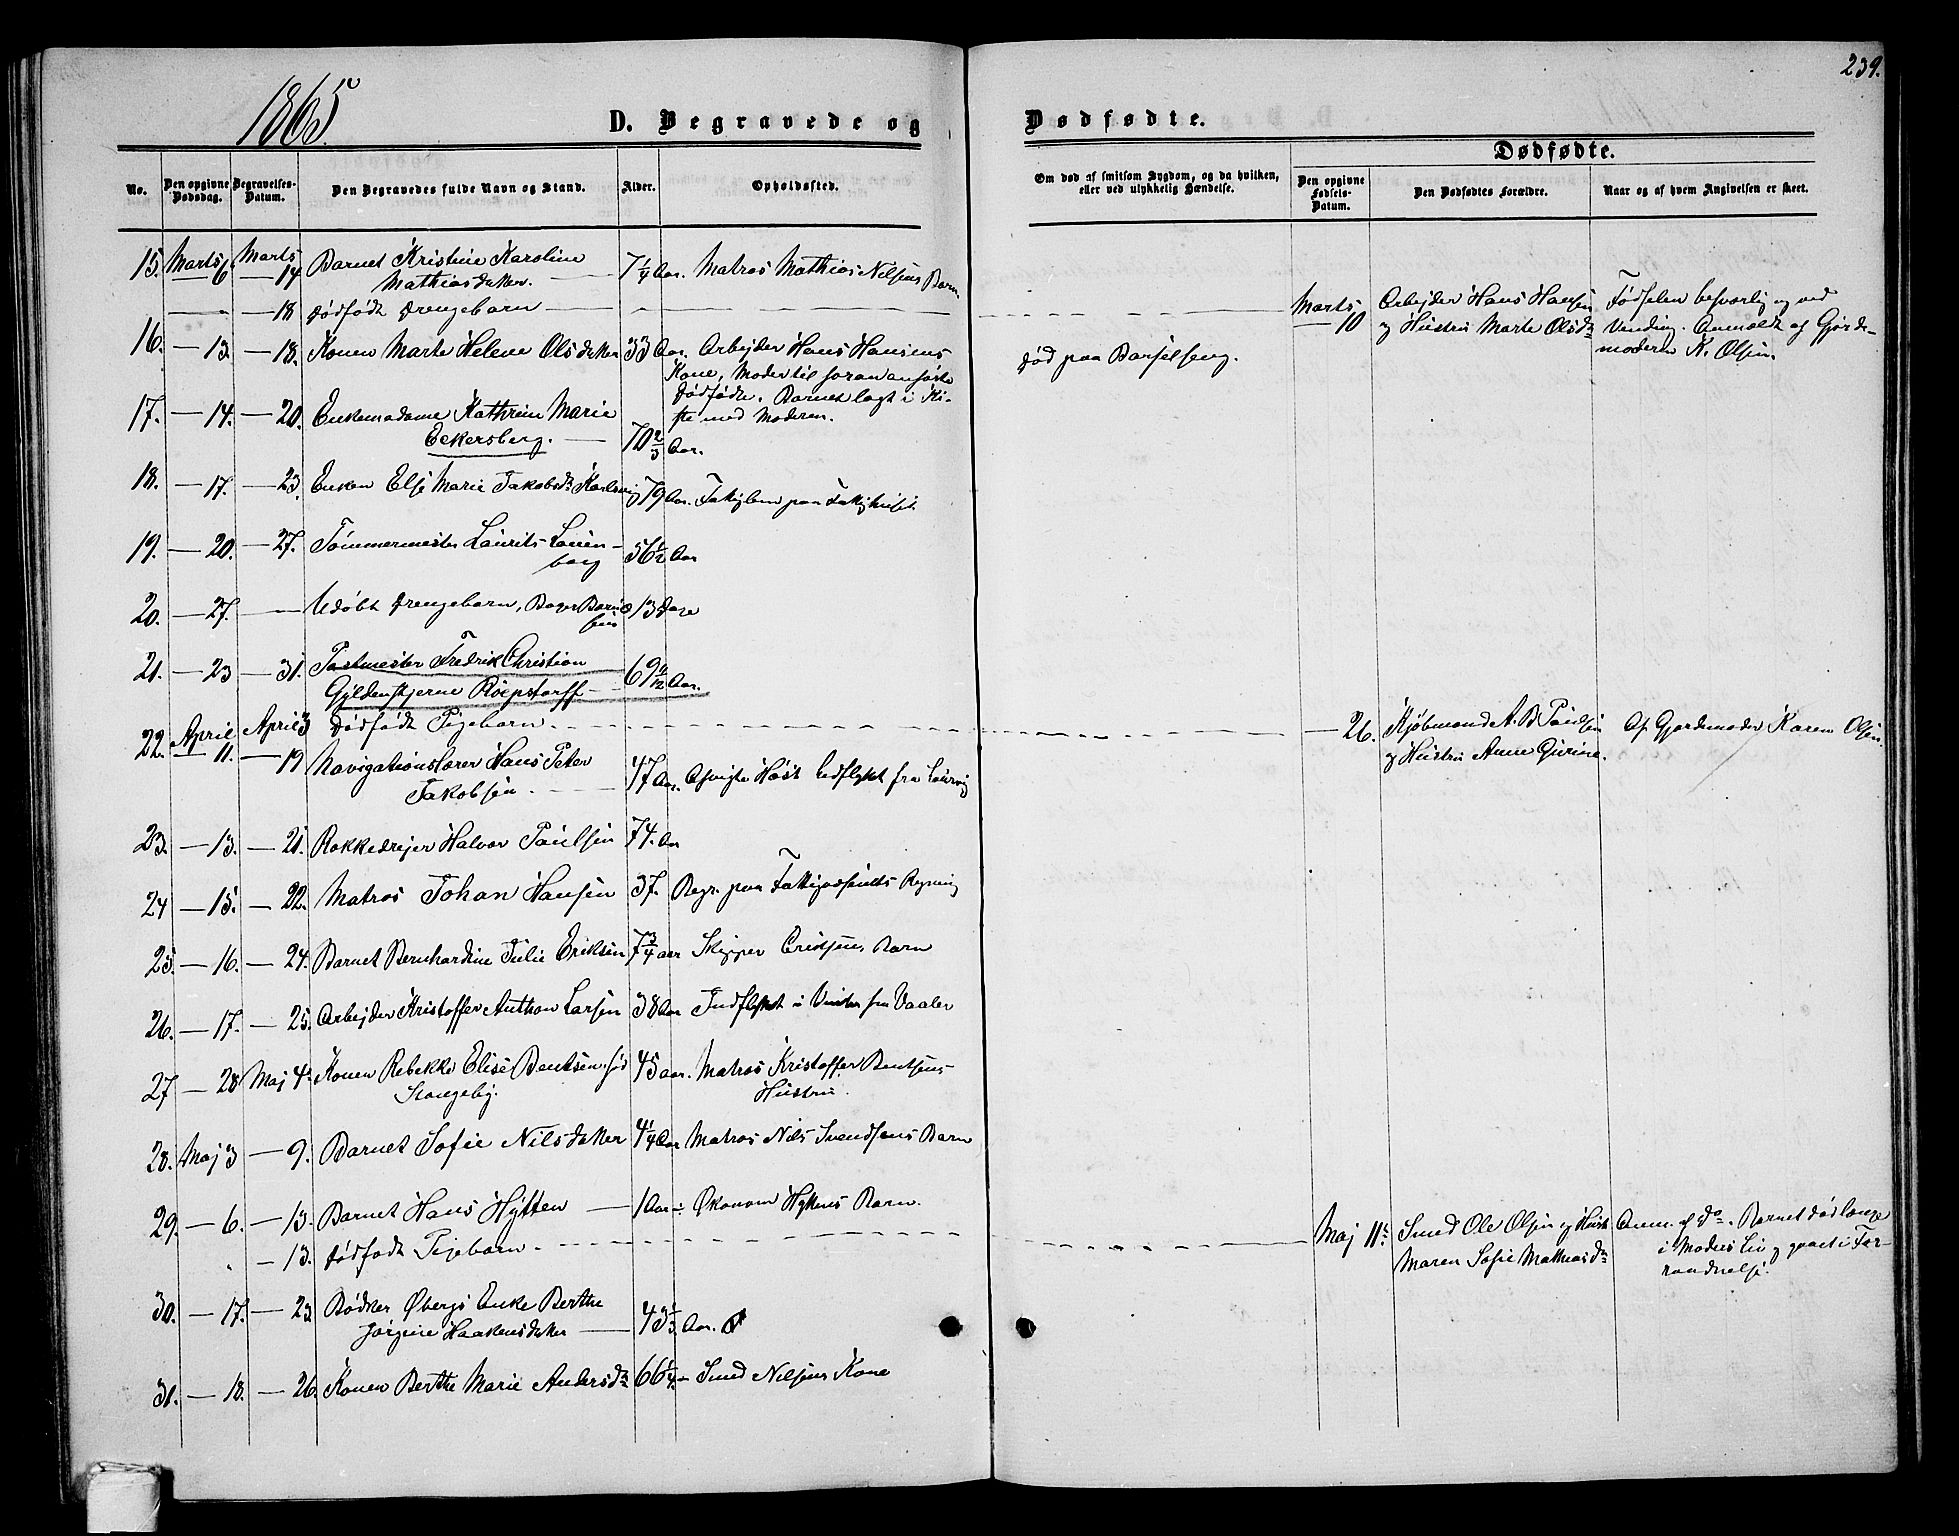 239.
1865.
D. Begravede og Dødfødte.
Dødfødte.
No.
Den opgivne Dødsdag.
Begravelses-Datum.
Den Begravedes fulde Navn og Stand.
Alder.
Opholdssted.
Om død af smitsom Sygdom, og da hvilken,
eller ved ulykkelig Hændelse.
Den opgivne Fødsels-Datum.
Den Dødfødtes Forældre.
Naar og af hvem Angivelsen er skeet.
15. Marts 6. Marts 14 Barnet Kristine Karoline 7 1/4 Aar. Matros Mathias Nilsens Barn
Mathiasdatter.
— 18 Dødfødt Drengebarn — Marts 10 Arbejder Hans Hansen Fødselen besværlig og ved
og Hustru Marte Olsdr Vending. Anmeldt af Gjorde-
moderen K. Olsen.
16. — 13. — 18. Konen Marte Helene Olsdatter 33 Aar. Arbejder Hans Hansens Død paa Barselseng.
Kone, Moder til foran anførte
Dødfødte. Barnet lagt i Ki-
ste med Moderen.
17. — 14. — 20. Enkemadame Kathrine Marie
Eckersberg. — 70 2/3 Aar.
18. — 17. — 23. Enken Else Marie Jakobsdr 79 Aar. Fattiglem paa Fattighuset.
19. — 20. — 27. Tømmermester Laurits Lauen-
borg 56 1/2 Aar
20. — 27. — Udøbt Drengebarn, 13 Dage
21. — 23 — 31. Postmester Fredrik Christian
Gyldenstjerne Roepstorff — 69 Aar.
April 3 Dødfødt Pigebarn. — 26. Kjøbmand A. B. Paulsen Af Gjordemoder Karen Olsen.
og Hustru Anne Gurine.
22. April 11. — 19 Navigationslærer Hans Peter 47 Aar. Afvigte Høst indflyttet fra Laurvig
Jakobsen.
23. — 13. — 21. Rokkedrejer Halvor Paulsen 74. Aar
24 — 15. — 22. Matros Johan Hansen 37. Begr. paa Fattigvæsenets Regning
25. — 16. — 24. Barnet Bernhardine Julie Eriksen 7 3/4 aar Skipper Eriksens Barn
26. — 17. — 25. Arbejder Kristoffer Anthon Larsen 38 Aar Indflyttet i Vinter fra Vaaler
27 — 28 Maj 4. Konen Rebekke Elise Bentsen, fød 45 aar. Matros Kristoffer Bentsens
Stangeby. Hustru.
28. Maj 3 — 9. Barnet Sofie Nilsdatter 4 1/4 Aar Matros Nils Svendsens Barn
29. — 6. — 13. Barnet Hans Hytten — 1 Aar Økonom Hyttens Barn.
— 13. Dødfødt Pigebarn. — Maj 11. Smed Ole Olsen og Hustr Anm. af Do. Barnet død længe
Maren Sofie Mathiasdr i Moders Liv og gaaet i For-
raadnelse.
30. — 17. — 23 Bødker Øbergs Enke Berthe
Jørgine Haakensdatter — 43 1/3 Aar.
31. — 18. — 26. Konen Berthe Marie Andersdr 66 1/4 Smed Nilsens Kone